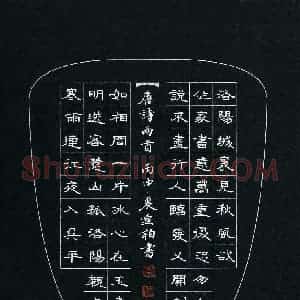 洛陽城裏見秋風欲
作家書意萬重復恐匆
說不盡行人臨發又開
唐詩兩首丙申夏
書
如相問一片冰心在玉
明送客楚山孤洛陽親
寒雨連江夜入吳平
Shufaziliao.COM